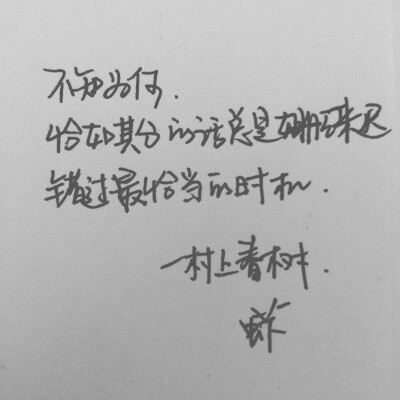 不知为何.
恰如其分的话总是姗姗来迟
错过最恰当的时机.
—村上春树.